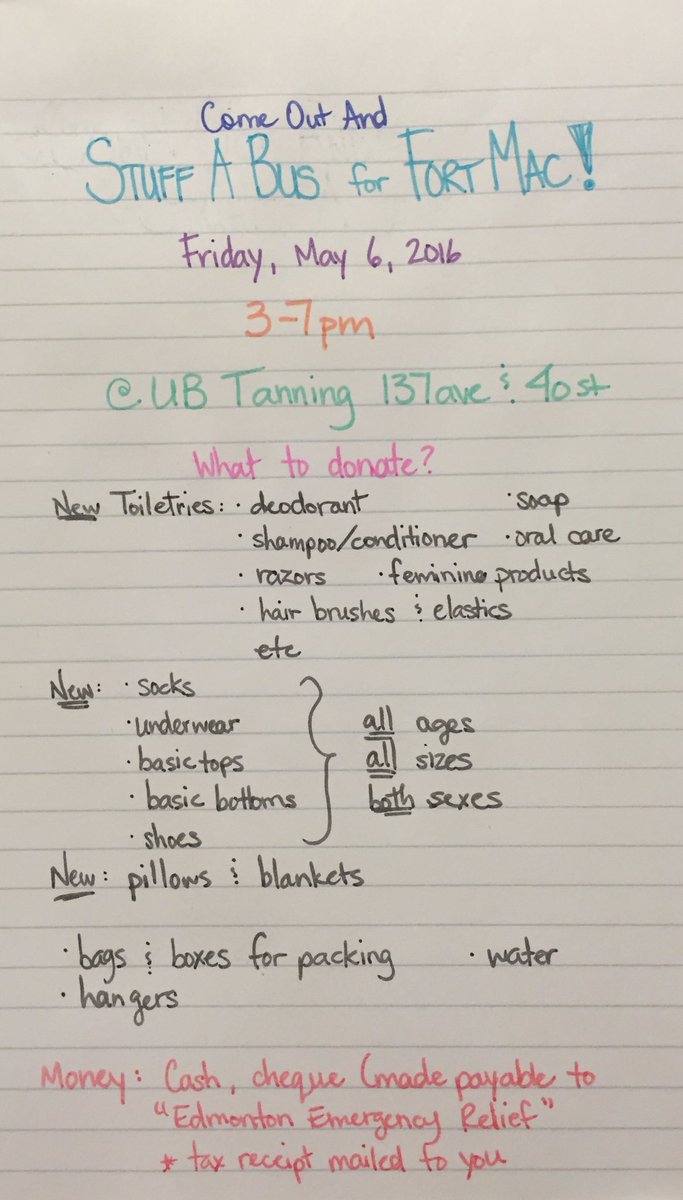 Come Out And
STUFF A BUS for FORT MAC!
Friday, May 6, 2016
3-7pm
@ UB Tanning 137ave & 40st
What to donate?
New Toiletries: · deodorant · soap
· shampoo/conditioner · oral care
· razors · feminine products
· hair brushes & elastics
etc
New: · socks
· underwear all ages
· basic tops all sizes
· basic bottoms both sexes
· shoes
New: pillows & blankets
· bags & boxes for packing · water
· hangers
Money: Cash, cheque (made payable to
"Edmonton Emergency Relief"
* tax receipt mailed to you